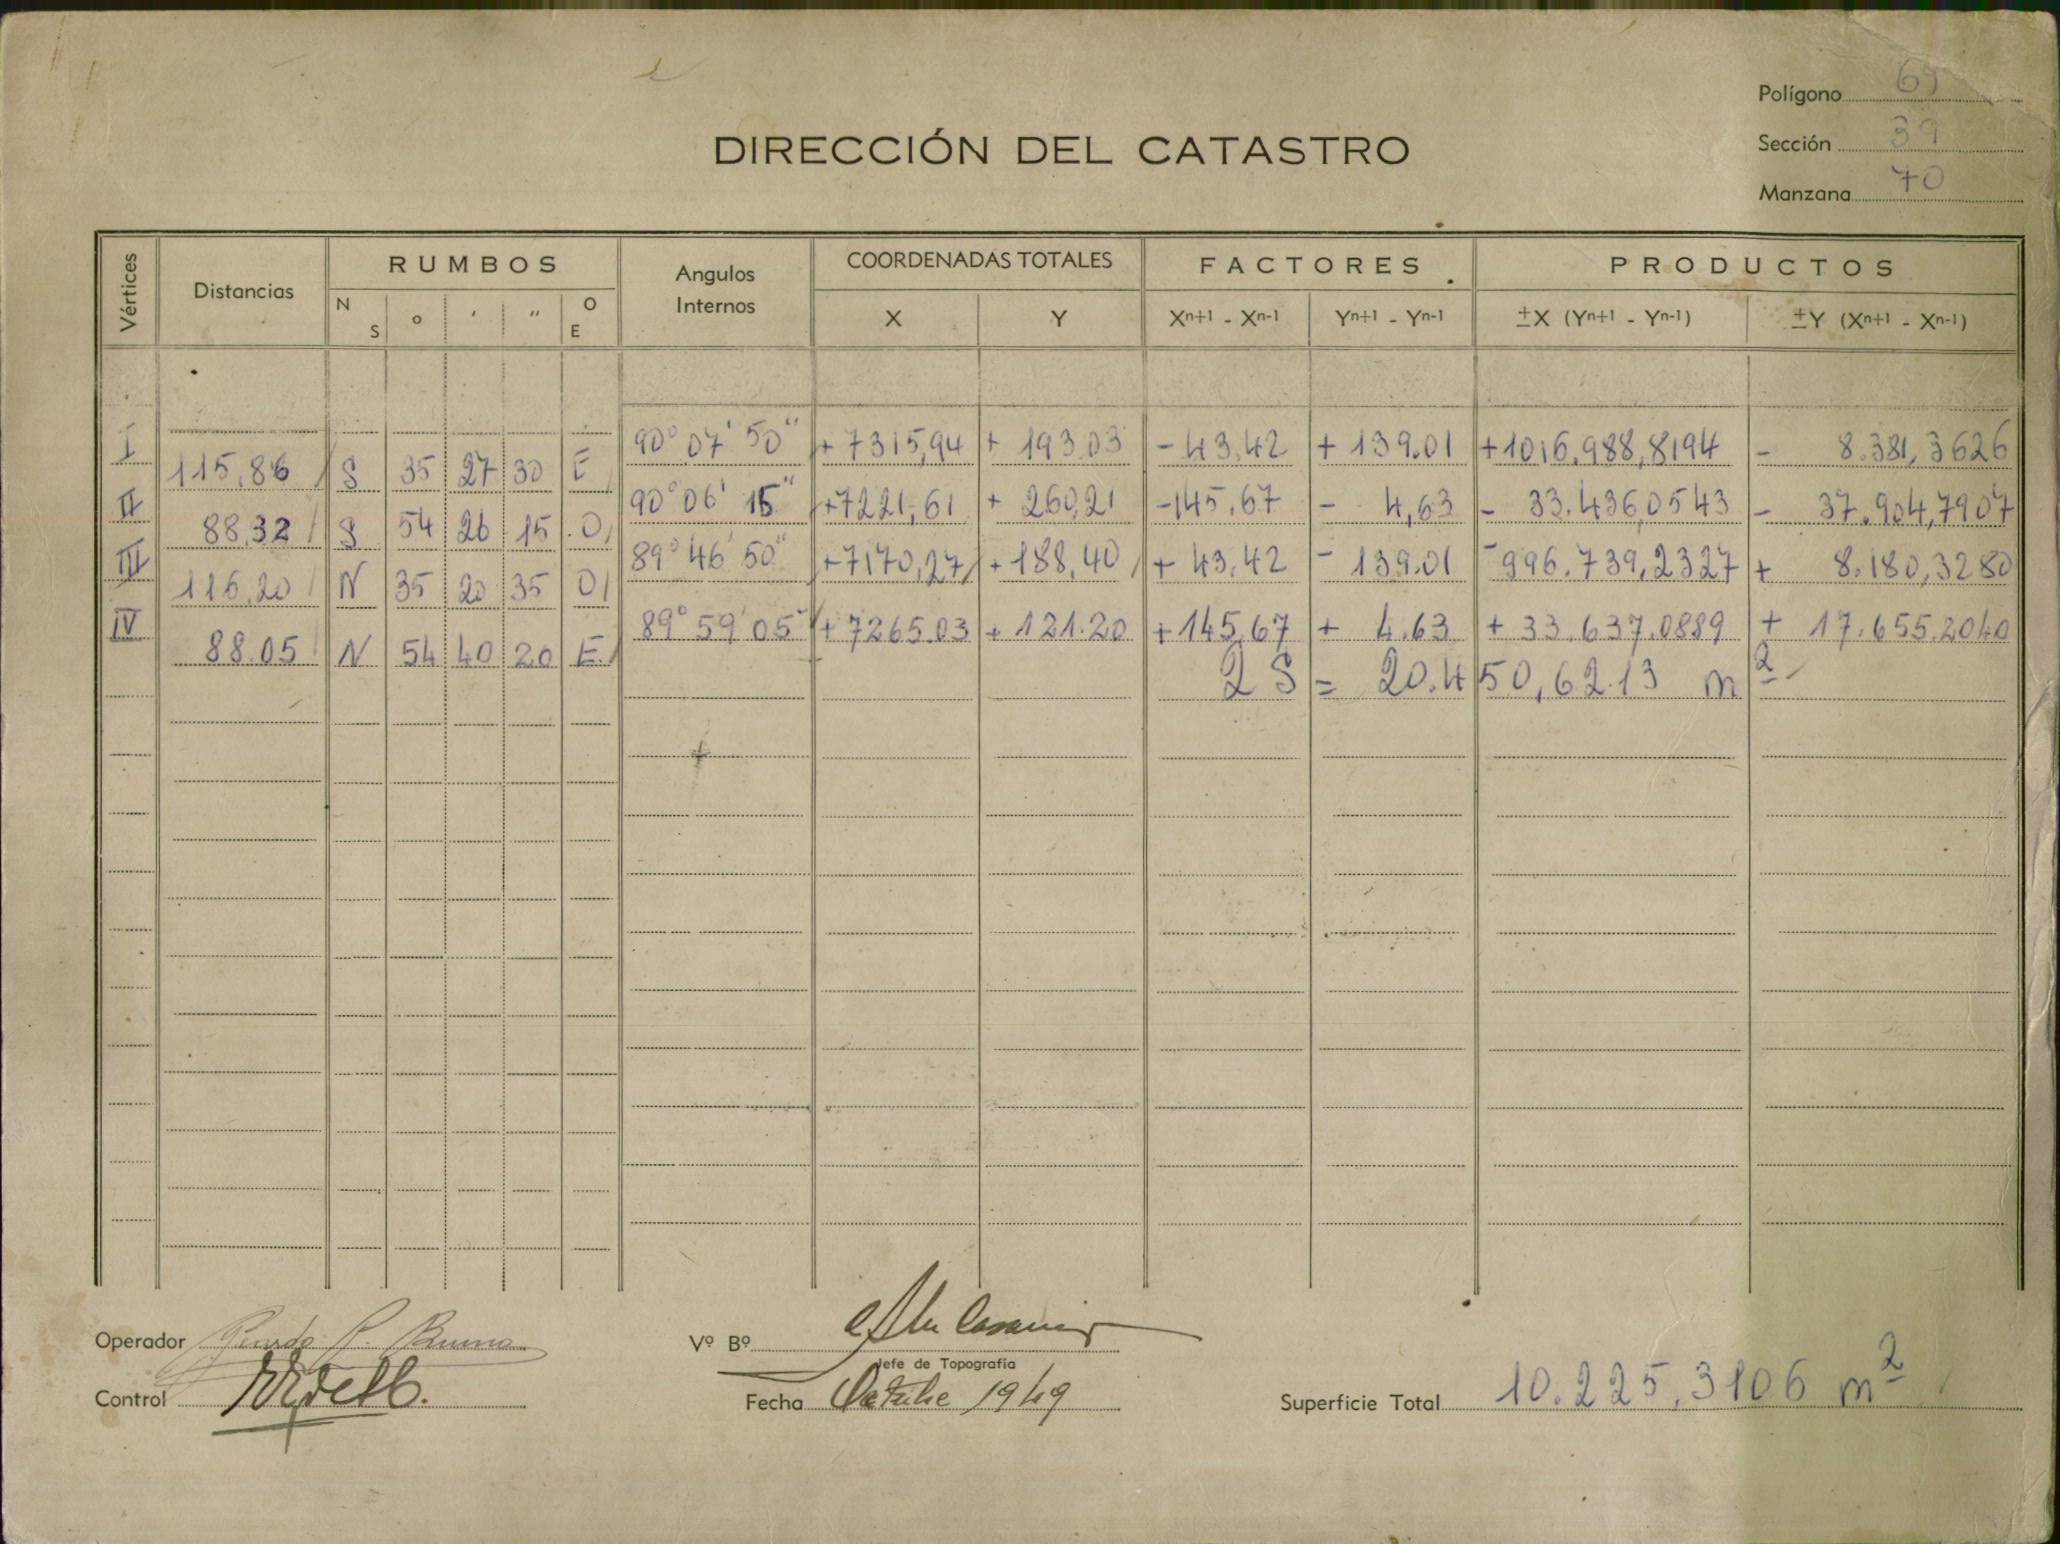 Polígono 69
DIRECCIÓN DEL CATASTRO
Sección 39
Manzana 70
Vértices Distancias RUMBOS Angulos Internos COORDENADAS TOTALES FACTORES PRODUCTOS
N S ° ' " O E X Y Xn+1 - Xn-1 Yn+1 - Yn-1 ±X (Yn+1 - Yn-1) ±Y (Xn+1 - Xn-1)
I 90° 07' 50" + 7315,94 + 193.03 - 43,42 + 139.01 +1016.988,8194 - 8.381,3626
115,86 S 35 27 30 E
II 90° 06' 15" +7221,61 + 260,21 -145,67 - 4,63 - 33.436,0543 - 37.904,7907
88,32 S 54 26 15 O
III 89° 46' 50" +7170,27 +188,40 + 43,42 - 139.01 -996.739,2327 + 8.180,3280
116,20 N 35 20 35 O
IV 89° 59' 05" + 7265.03 + 121.20 +145,67 + 4.63 + 33.637.0889 + 17.655.2040
88.05 N 54 40 20 E
2 S = 20.450,6213 m2
Operador
Vº Bº
Jefe de Topografía
Control
Fecha Octubre 1949
Superficie Total 10.225,3106 m2